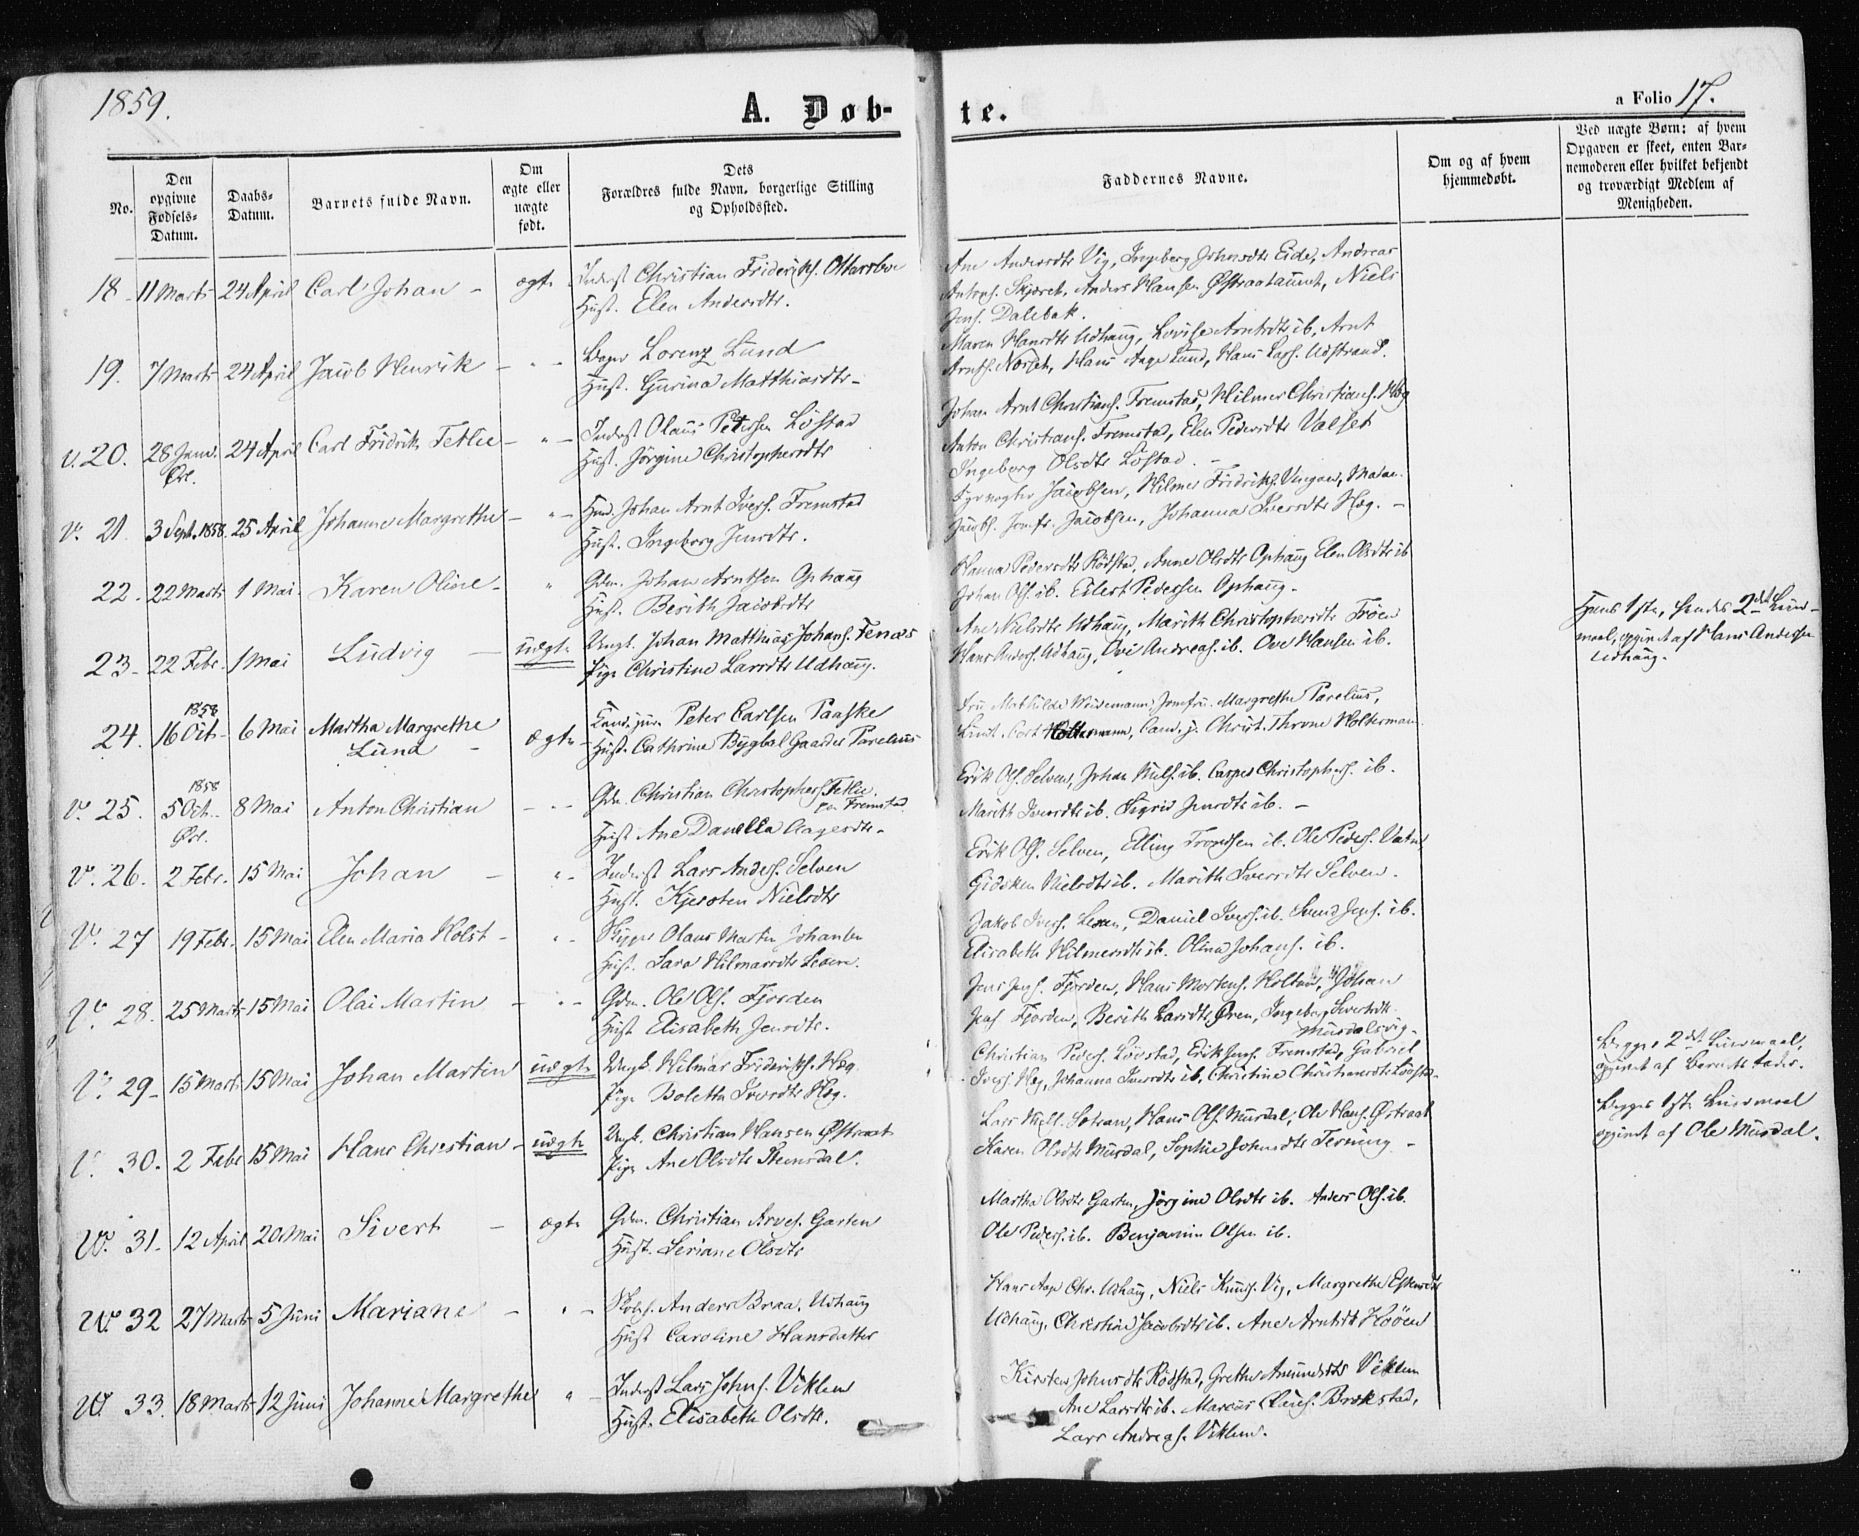 1859.
A. Døb-
te.
a Folio 17.
No.
Den
opgivne
Fødsels-
Datum.
Daabs-
Datum.
Barnets fulde Navn.
Om
ægte eller
uægte
født.
Dets
Forældres fulde Navn, borgerlige Stilling
og Opholdssted.
Faddernes Navne.
Om og af hvem
hjemmedøbt.
Ved uægte Børn: af hvem
Opgaven er skeet, enten Bar-
nemoderen eller hvilket bekjendt
og troværdigt Medlem af
Menigheden.
18 - 11 Marts 24 April Carl Johan - ægte Inderst Christian Fridriks. Ottersboe
Hust. Elen Andersdtr.
Ane Andersdtr Vig, Ingeberg Johnsdtr Eide, Andreas
Antons. Skjæret, Anders Hansen Østraataunet, Niels
Jens. Dalebak.
19. 7 Marts 24 April Jacob Henrik - " - Lorenz Lund
Hust. Gurina Matthiasdtr -
Maren Hansdtr Udhaug, Lovise Arntsdtr ib, Arnt
Arnts. Norset, Hans Aage Lund, Hans Lars. Udstrand.
v. 20. 28 Janv. 24 April Carl Fridrik Tetlie - " - Inderst Olaus Petersen Löstad
Ørl.
Hust. Jørgine Christophersdtr
Johan Arnt Christians. Fremstad, Hilmer Christians. Høg
Anton Christians. Fremstad, Elen Pedersdtr Valset
Ingeborg Olsdtr Löstad. -
v. 21 3 Sept. 1858. 25 April Johanne Margrethe - " - Huusm. Johan Arnt Ivers. Fremstad
Hust. Ingeborg Jensdtr.
Jacobsen, Hilmer Fridriks. Vingan, Madae.
Jacobs. Jomfr. Jacobsen, Johanna Iversdtr Høg. -
22. 22 Marts 1 Mai. Karen Oline - " Gdm. Johan Arntsen Ophaug
Hust. Berith Jacobsdtr
Hanna Pedersdtr Rödstad, Anne Olsdtr Ophaug Elen Olsdtr ib
Johan Ols. ib. Eilert Pedersen Ophaug.
23 - 22 Febr. 1 Mai Ludvig - uægte Ungk. Johan Matthias Johans. Fenæs
Pige Christine Larsdtr Udhaug.
Ane Nielsdtr Udhaug, Marith Christophersdtr Trøen
Hans Anders. Udhaug, Ove Andreas. ib. Ove Hansen ib.
Hans 1ste, hendes 2det Leier-
maal, opgivet af Hans Andersen
Udhaug.
24. 1858 16 Oct - 6 Mai Martha Margrethe
Lund - ægte Cand. jur. Peter Carlsen Paaske
Hust. Cathrine Bygbal Gaarder Parelius
Fru Mathilde Weidemann, Jomfru Margrethe Parelius,
Lieut. Cort Holtermann, Cand. j. Christ. Throne Holterman.
v. 25. 1858 5 Oct. 8 Mai Anton Christian - " - Gdm. Christian Christophers. Tetlie.
Ørl. paa Fremstad
Hust Ane Danella Aagesdtr -
Erik Ols. Selven, Johan Niels. ib. Casper Christophers. ib.
Marith Iversdtr ib. Sigrid Jensdtr ib. -
v. 26. 2 Febr. 15 Mai Johan - " - Inderst Lars Anders. Selven
Hust. Kjersten Nielsdtr
Erik Ols. Selven, Elling Trondsen ib. Ole Peders. Vatne
Gidsken Nielsdtr ib. Marith Iversdtr Selven.
v. 27 19 Febr. 15 Mai Elen Maria Holst - " - Skipper Olaus Martin Johansen
Hust. Sara Hilmarsdtr Lexen.
Jakob Ivers. Lexen, Daniel Ivers. ib. Svend Jeps. ib.
Elisabeth Hilmersdtr ib. Olina Johans. ib.
v. 28. 25 Marts 15 Mai Olai Martin - " - Gdm. Ole Ols. Fjorden
Hust Elisabeth Jensdtr.
Jens Jens. Fjorden, Hans Mortens. Holtan, Johan
Jens Fjorden, Berith Larsdtr Øren, Ingeborg Sivertsdtr
Musdalsvig -
v. 29 - 15 Marts 15 Mai Johan Martin uægte Ungk. Hilmar Frideriks. Høg.
Pige Boletta Iversdtr Høg.
Christian Peders. Lövstad, Erik Jens. Fremstad, Gabriel
Ivers. Høg, Johanna Iversdtr ib, Christine Christiansdtr Lövstad -
Begges 2det Leiermaal,
opgivet af Barnets Fader.
v. 30. 2 Febr 15 Mai Hans Christian - uægte Ungk. Christian Hansen Østraat
Pige Ane Olsdtr Stensdal.
Lars Niels. Sotran, Hans Ols. Musdal, Ole Hans. Østraat
Karen Olsdtr Musdal, Sophie Johnsdtr Terning -
Begges 1ste Leiermaal
opgivet af Ole Musdal.
W. 31. 12 April 20 Mai Sivert - ægte Gdm. Christian Arves. Garten
Hust. Seriane Olsdtr
Martha Olsdtr Garten, Jørgine Olsdtr ib. Anders Ols. ib.
Ole Peders. ib. Benjamin Olsen ib.
W. 32 27 Marts 5 Juni Mariane - " - Skolel. Anders Braa, Udhaug
Hust Caroline Hansdatter
Hans Aage Chr. Udhaug, Niels Knuds. Vig, Margrethe Espensdtr
Udhaug, Christine Jacobsdtr ib. Ane Arntsdtr Hoöen
W. 33. 18 Marts 12 Juni Johanne Margrethe " - Inderst Lars Johns. Viklem
Hust. Elisabeth Olsdtr.
Kirsten Johnsdtr Rödstad, Grethe Amundsdtr Viklem
Ane Larsdtr ib. Marcus Claus. Brækstad,
Lars Andreas. Viklem.